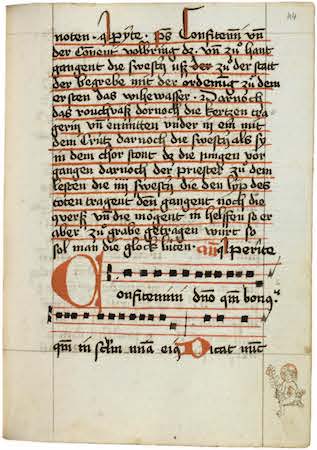 44
noten · Aperite · ps Confitemini vn̄
der Couent volbring dz · vn̄ zů hant
gangent die swestẏ uſz der zů der ſtatt
der begrebe mit der ordenūg zů dem
erſten das wihewaſſer · Darnoch
das rouchvaſz dornoch die kertzen tra
gerin vn̄ enmitten vnder in ein mit
dem Crütz darnoch die swestẏ als ſy
in dem chor ſtont dz die jungen vor
gangen darnoch der prieſter zů dem
leſten die iiii swestẏ die den lyp des
toten tragent den gangent noch die
querſz vn̄ die mögent in helffen so er
aber zů grabe getragen wurt so
sol man die glock lúten · an̄ Aperite
Confitemini dn̄o qm̄ bonus
qm̄ in sclm̄ mīa eiꝰ Dicat nūc